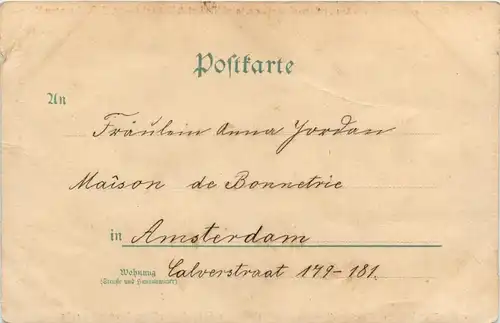 Postkarte
An
Fräulein Anna Jordan
Maison de Bonnetrie
in Amsterdam
Wohnung Calverstraat 179-181.
(Straße und Hausnummer)